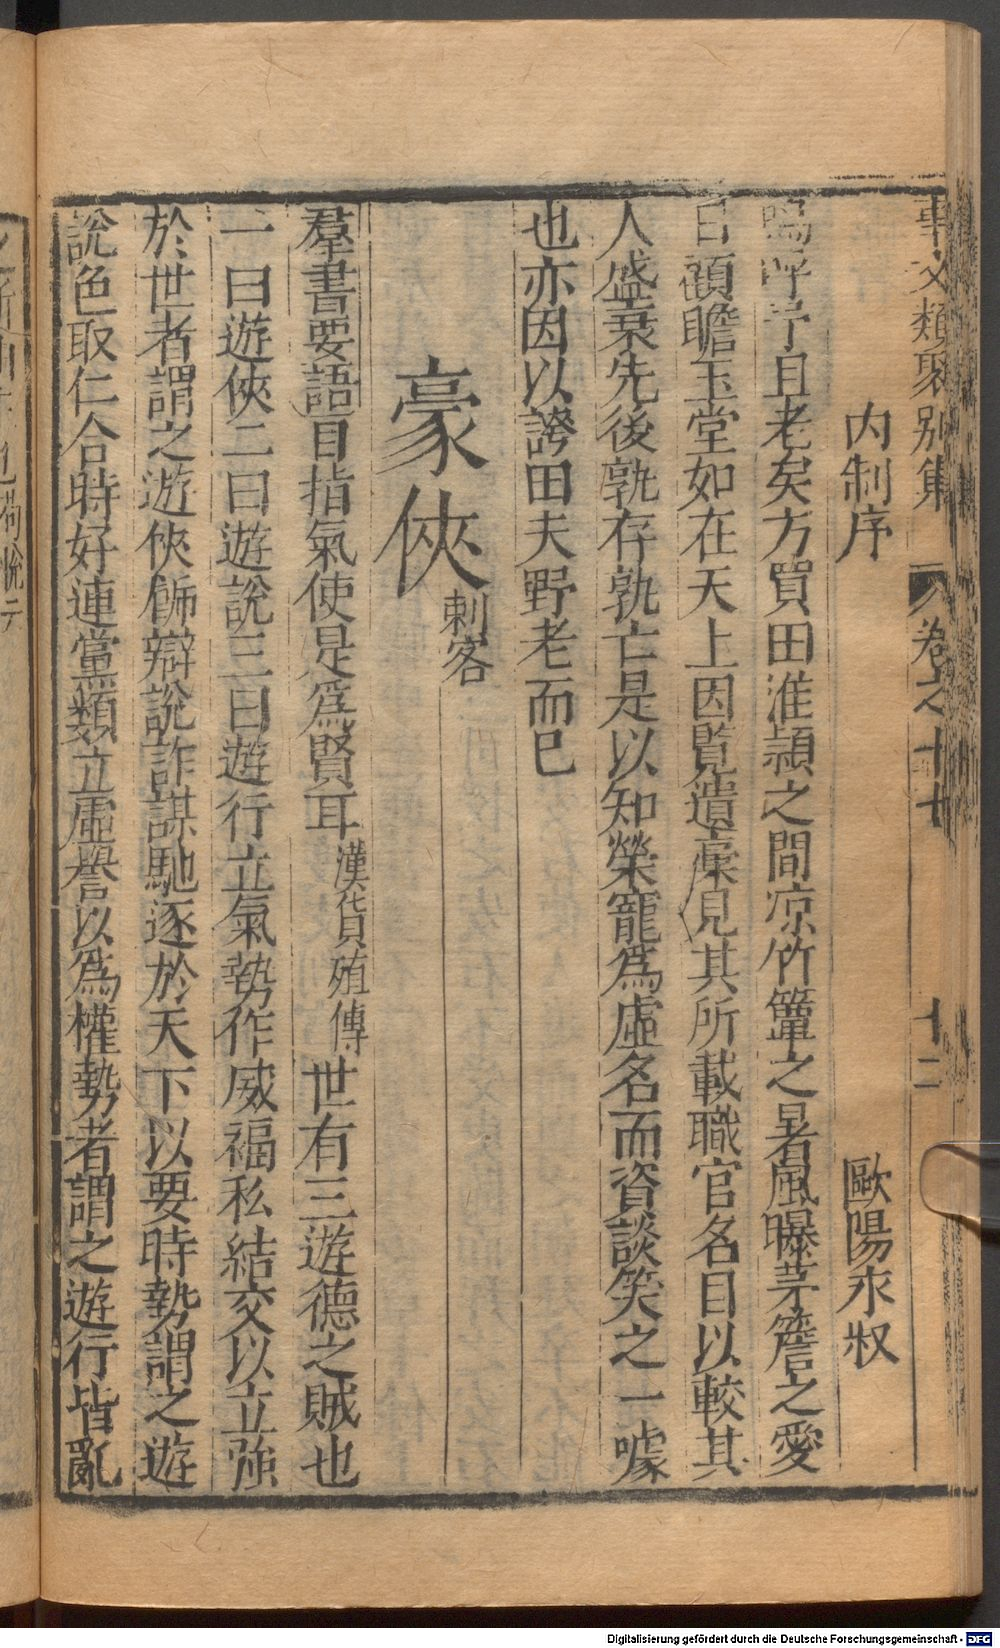 事文類聚别集 卷之十七 十二
内制序 歐陽永叔
嗚呼予且老矣方買田淮潁之間凉竹簟之暑風曝茅簷之愛
日顧瞻玉堂如在天上因覧遺藁見其所載職官名目以較其
人盛衰先後孰存孰亡是以知榮寵爲虛名而資談笑之一噱
也亦因以誇田夫野老而已
豪俠刺客
羣書要語目指氣使是爲賢耳漢貨殖傳世有三遊德之賊也
一曰遊俠二曰遊說三曰遊行立氣勢作威福私結交以立強
於世者謂之遊俠飾辯說詐謀馳逐於天下以要時勢謂之遊
說色取仁合時好連黨類立虛譽以爲權勢者謂之遊行皆亂
Digitalisierung gefördert durch die Deutsche Forschungsgemeinschaft - DFG